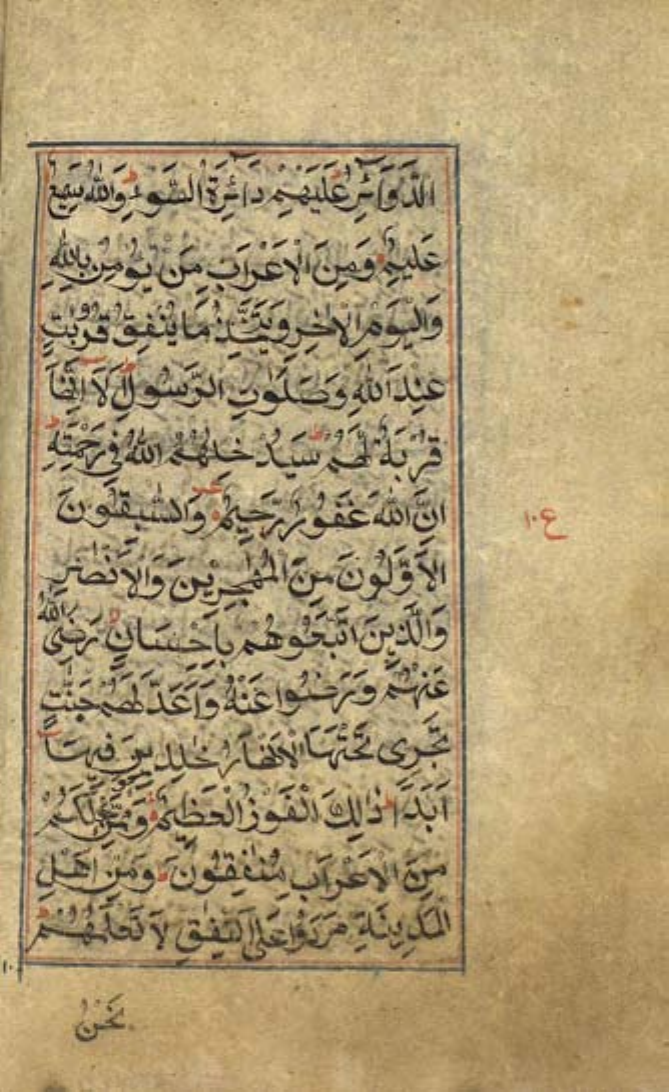 الدَّوَآئِرَ عَلَيْهِمْ دَآئِرَةُ السَّوْءِ وَاللّٰهُ سَمِيْعٌ
عَلِيْمٌ وَمِنَ الْاَعْرَابِ مَنْ يُّؤْمِنُ بِاللّٰهِ
وَالْيَوْمِ الْاٰخِرِ وَيَتَّخِذُ مَا يُنْفِقُ قُرُبٰتٍ
عِنْدَ اللّٰهِ وَصَلَوٰتِ الرَّسُوْلِ اَلَآ اِنَّهَا
قُرْبَةٌ لَّهُمْ سَيُدْخِلُهُمُ اللّٰهُ فِيْ رَحْمَتِهٖ
اِنَّ اللّٰهَ غَفُوْرٌ رَّحِيْمٌ وَالسّٰبِقُوْنَ
الْاَوَّلُوْنَ مِنَ الْمُهٰجِرِيْنَ وَالْاَنْصَارِ
وَالَّذِيْنَ اتَّبَعُوْهُمْ بِاِحْسَانٍ رَّضِيَ اللّٰهُ
عَنْهُمْ وَرَضُوْا عَنْهُ وَاَعَدَّ لَهُمْ جَنّٰتٍ
تَجْرِيْ تَحْتَهَا الْاَنْهَارُ خٰلِدِيْنَ فِيْهَآ
اَبَدًا ذٰلِكَ الْفَوْزُ الْعَظِيْمُ وَمِمَّنْ حَوْلَكُمْ
مِّنَ الْاَعْرَابِ مُنٰفِقُوْنَ وَمِنْ اَهْلِ
الْمَدِيْنَةِ مَرَدُوْا عَلَى النِّفَاقِ لَا تَعْلَمُهُمْ
نَحْنُ